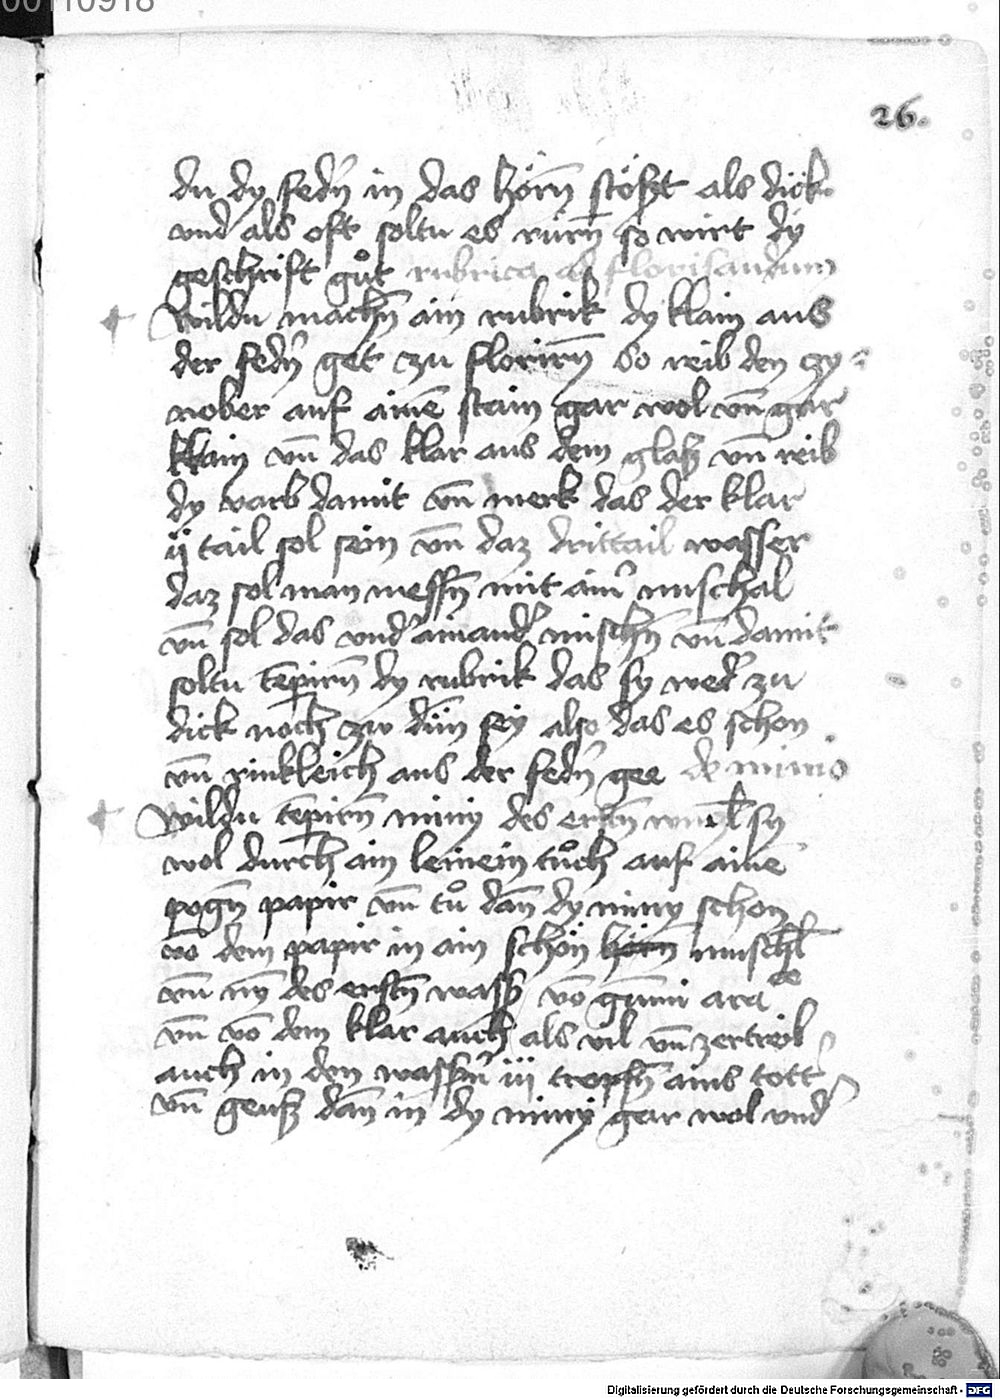 00110918
26.
du dy fedn̄ in das hörn̄ stößt als dick
vnd als oft soltu es rürn̄ so wirt dy
geschrift gůt rubrica ad florisandum
Wildu machn̄ ain rubrik dy klain aus
der fedn̄ get zu florirn̄ so reib den zy=
nober auf ainē stain gar wol vn̄ gar
klain vn̄ das klar aus dem glaß vn̄ reib
dy varb damit vn̄ merk das der klar
ij tail sol sein vn̄ daz drittail wasser
daz sol man messn̄ mit ainr̄ muschal
vn̄ sol das vnd' ainand' mischn̄ vn̄ damit
soltu tēpirn̄ dy rubrik das sy wed' zu
dick noch zw dün sey also das es schon
vn̄ rinkleich aus der fedn̄ gee de minio
Wildu tēpirn̄ miny des erstn̄ sy
wol durch ain leinein tůch auf ainē
pogn̄ papir vn̄ tů dan̄ dy miny schon
vō dem papir in ain schön hörn̄ muschl̄
vn̄ ny des erstn̄ wass' vō gum̄i ara
vn̄ vō dem klar auch als vil vn̄ zertreib
auch in den wassern̄ iij tropfn̄ ains tott
vn̄ geuß dan̄ in dy miny gar wol vnd'
Digitalisierung gefördert durch die Deutsche Forschungsgemeinschaft - DFG